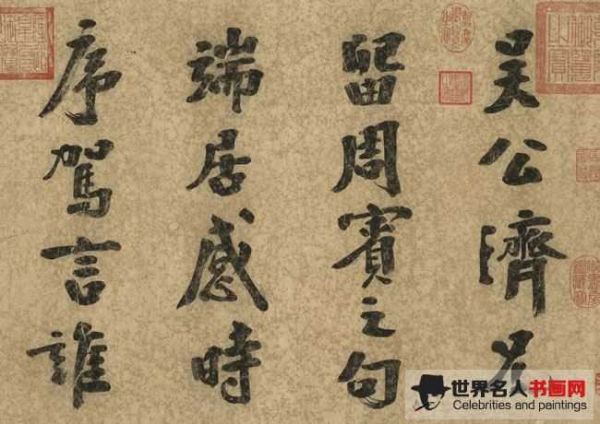 吳公濟
留周賓之句
端居感時
序駕言誰
世界名人书画网
Celebrities and paintings